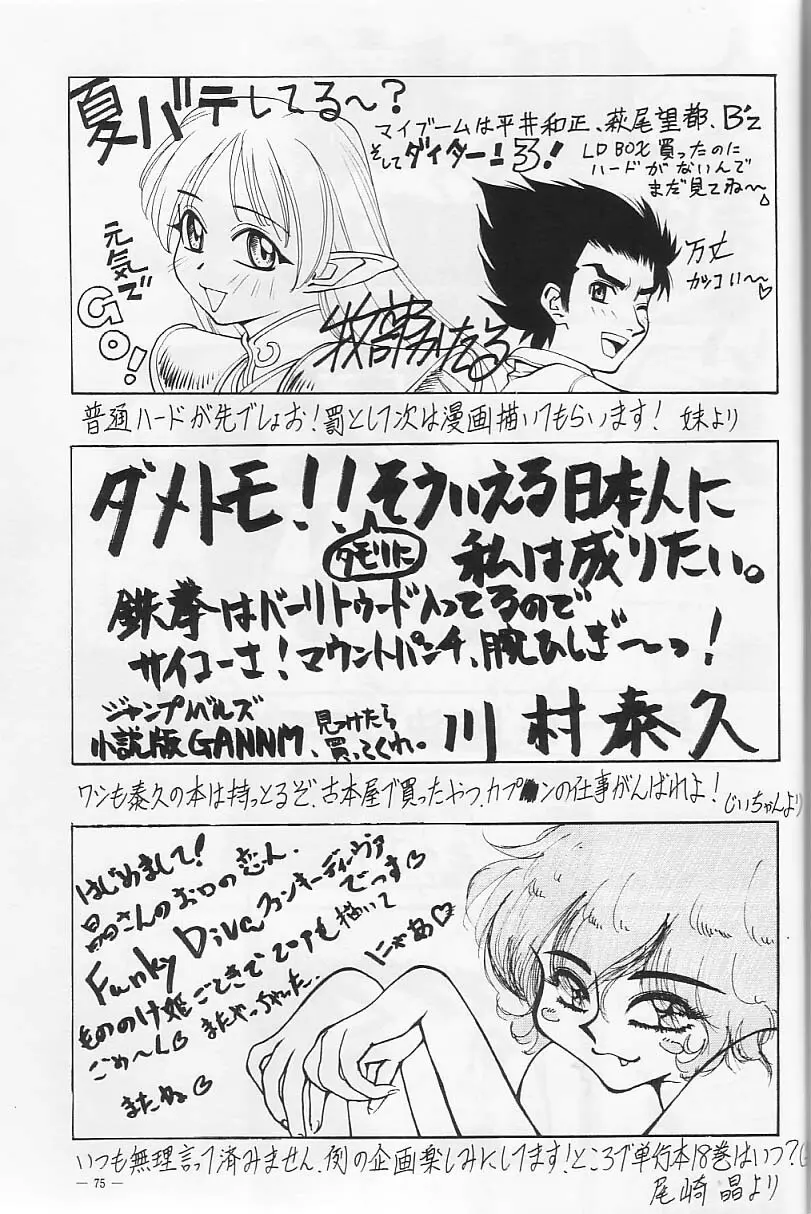 夏バテしてる〜?
マイブームは平井和正、萩尾望都、B'z
そしてダイターン3!
LD BOX 買ったのに
ハードがないんで
まだ見てね〜
万丈
カッコいい〜♡
元気で
GO!
普通ハードが先でしょお!罰として次は漫画描いてもらいます! 妹より
ダメトモ!!そういえる日本人に
タモリに
私は成りたい。
鉄拳はバーリトゥード入ってるので
サイコーさ!マウントパンチ、腕ひしぎ〜っ!
ジャンプノベルズ
小説版GANNM、見つけたら
買ってくれ。
川村泰久
ワシも泰久の本は持っとるぞ、古本屋で買ったやつ、カプ ンの仕事がんばれよ! じいちゃんより
はじめまして!
晶さんのお口の恋人、
Funky Diva ファンキーディヴァ
でっす♡
もののけ姫ごときで 描いて
ごめ〜ん♡ またやっちゃった。
にゃあ♡
またね♡
いつも無理言って済みません、例の企画楽しみにしてます!ところで単行本18巻はいつ?
尾崎 晶より
— 75 —